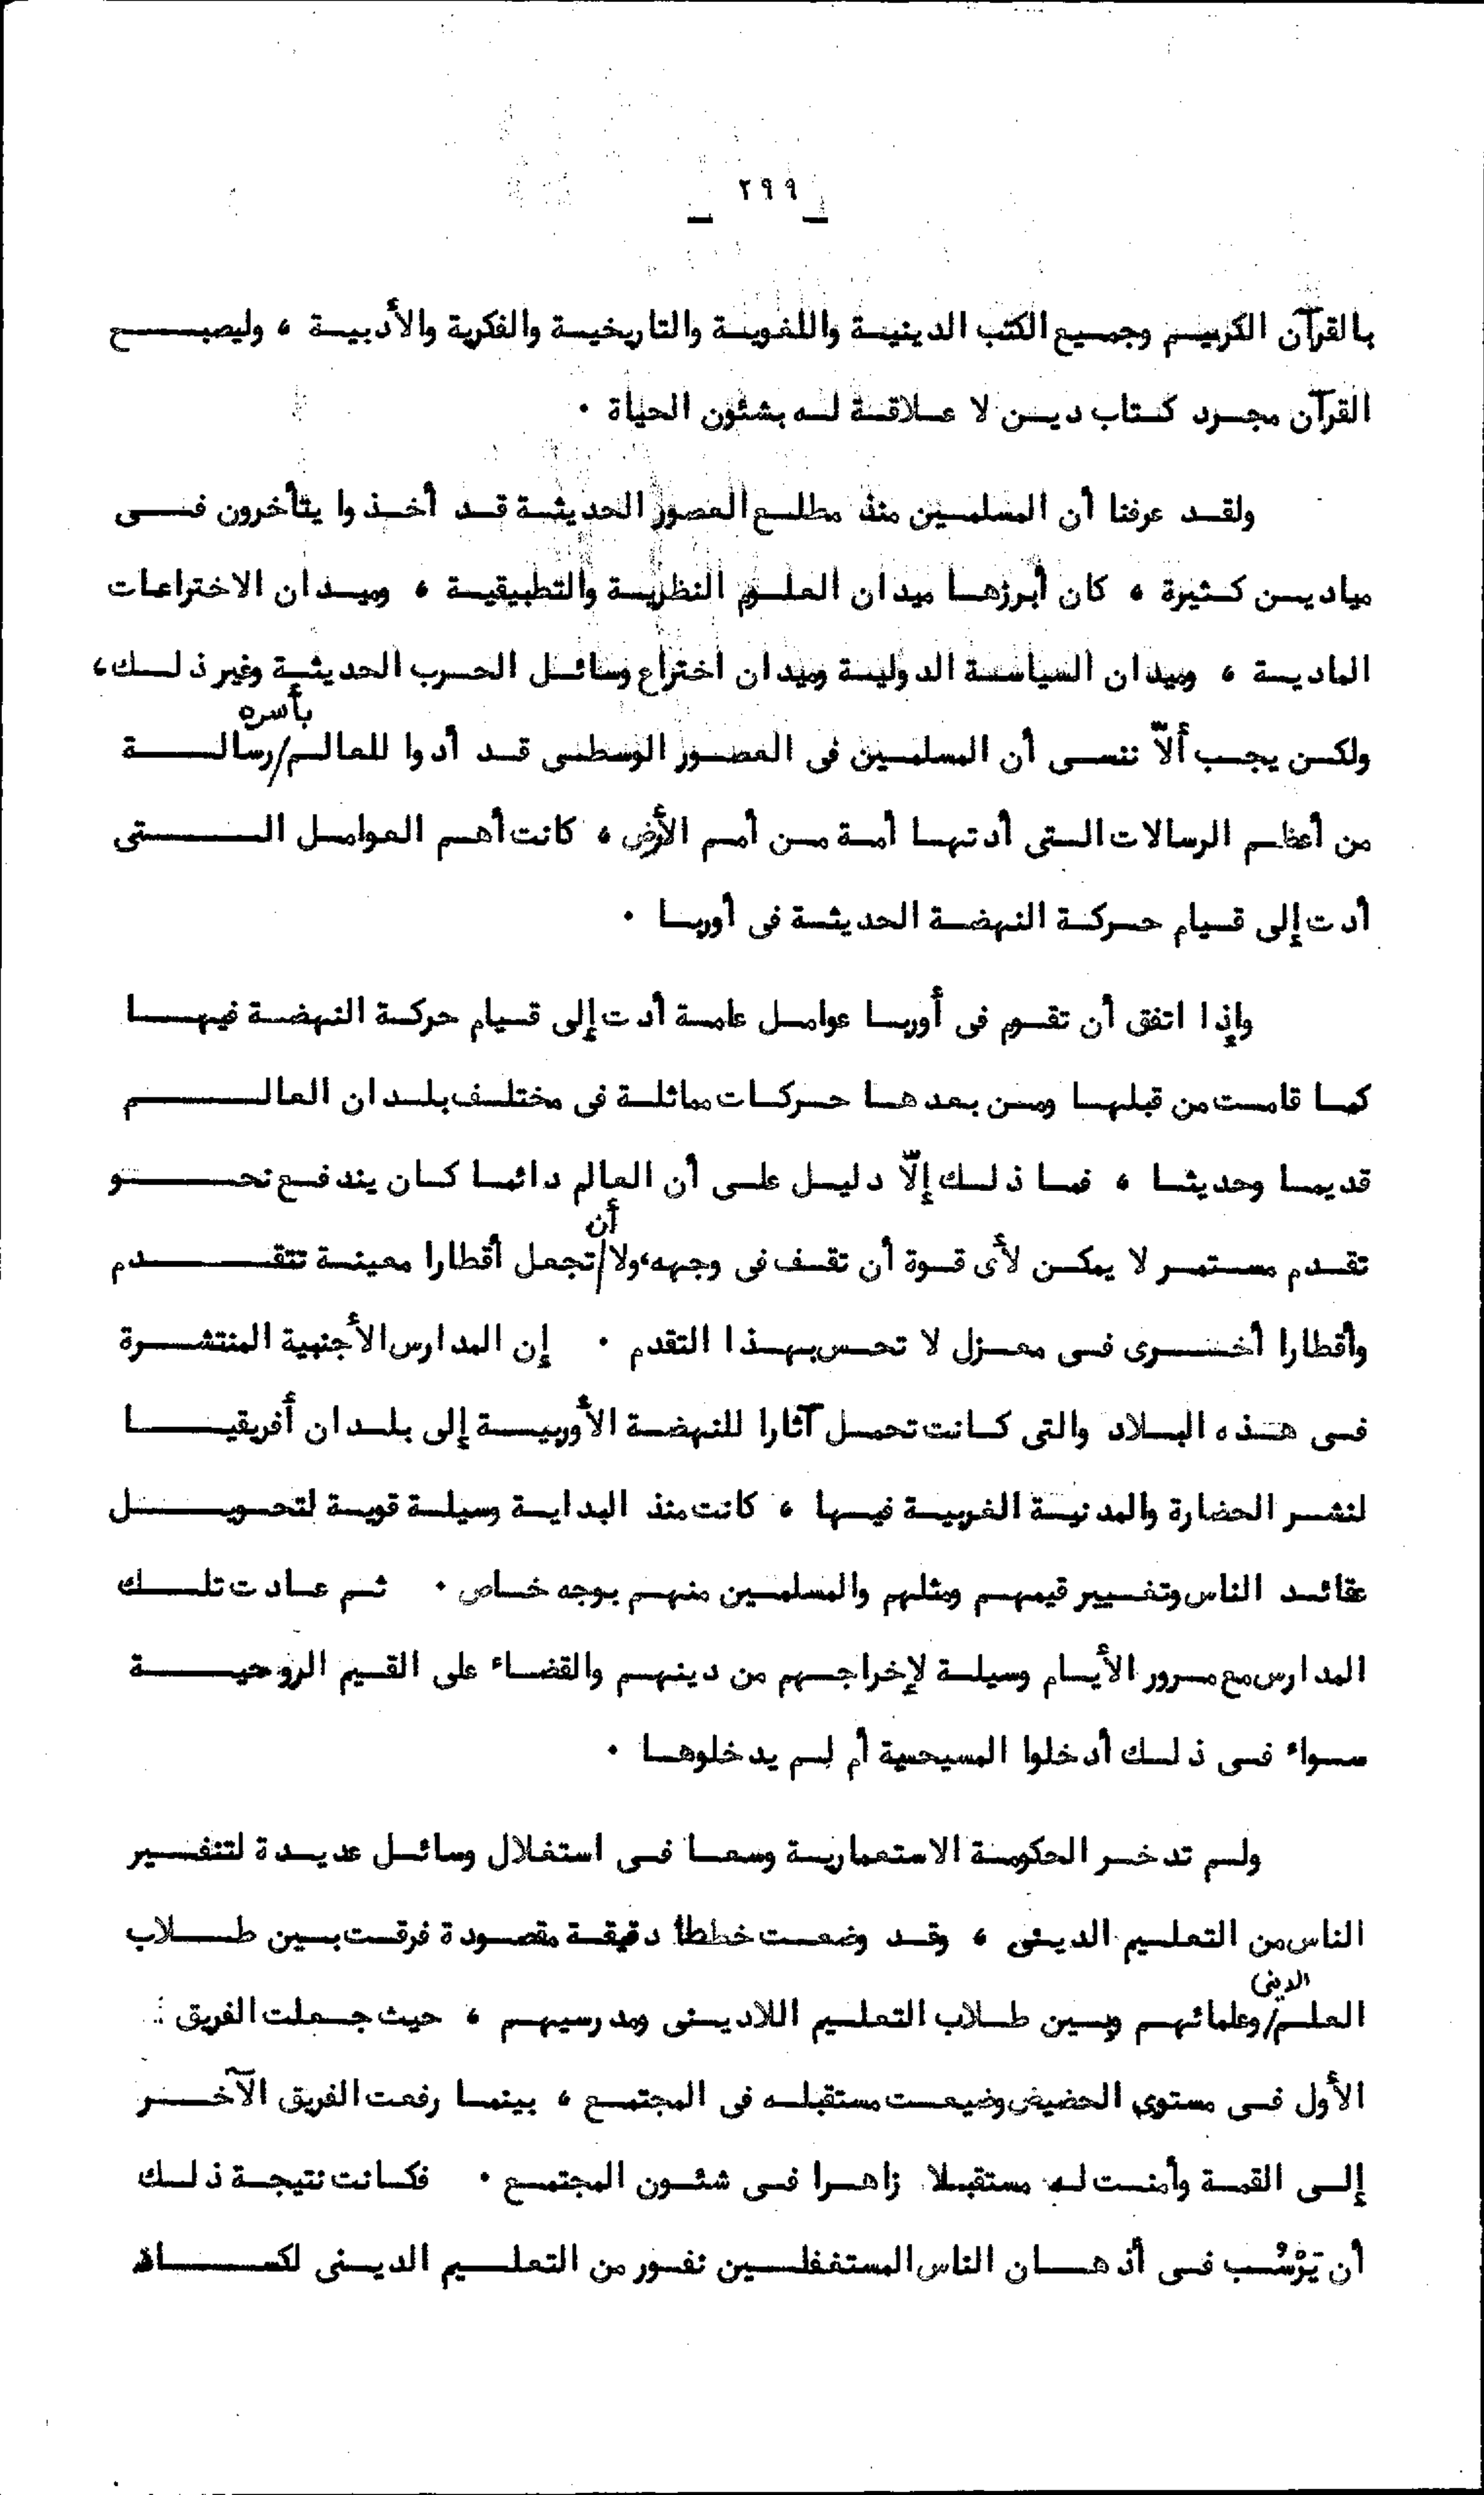 ٢٩٩
بالقرآن الكريم وجميع الكتب الدينية واللغوية والتاريخية والفكرية والأدبية ، وليصبح
القرآن مجرد كتاب دين لا علاقة له بشئون الحياة .
ولقد عرفنا أن المسلمين منذ مطلع العصور الحديثة قد أخذوا يتأخرون فى
ميادين كثيرة ، كان أبرزها ميدان العلوم النظرية والتطبيقية ، وميدان الاختراعات
المادية ، وميدان السياسة الدولية وميدان اختراع وسائل الحرب الحديثة وغير ذلك ،
ولكن يجب ألاّ ننسى أن المسلمين فى العصور الوسطى قد أدوا للعالم/بأسره رسالة
من أعظم الرسالات التى أدتها أمة من أمم الأرض ، كانت أهم العوامل التى
أدت إلى قيام حركة النهضة الحديثة فى أوربا .
وإذا اتفق أن تقوم فى أوربا عوامل عامة أدت إلى قيام حركة النهضة فيها
كما قامت من قبلها ومن بعدها حركات مماثلة فى مختلف بلدان العالم
قديما وحديثا ، فما ذلك إلاّ دليل على أن العالم دائما كان يندفع نحو
تقدم مستمر لا يمكن لأى قوة أن تقف فى وجهه ، ولا/أن تجعل أقطارا معينة تتقدم
وأقطارا أخرى فى معزل لا تحس بهذا التقدم . إن المدارس الأجنبية المنتشرة
فى هذه البلاد والتى كانت تحمل آثارا للنهضة الأوربية إلى بلدان أفريقيا
لنشر الحضارة والمدنية الغربية فيها ، كانت منذ البداية وسيلة قوية لتحويل
عقائد الناس وتغيير قيمهم ومثلهم والمسلمين منهم بوجه خاص . ثم عادت تلك
المدارس مع مرور الأيام وسيلة لإخراجهم من دينهم والقضاء على القيم الروحية
سواء فى ذلك أدخلوا المسيحية أم لم يدخلوها .
ولم تدخر الحكومة الاستعمارية وسعا فى استغلال وسائل عديدة لتنفير
الناس من التعليم الدينى ، وقد وضعت خططا دقيقة مقصودة فرقت بين طلاب
العلم/الدينى وعلمائهم وبين طلاب التعليم اللادينى ومدرسيهم ، حيث جعلت الفريق
الأول فى مستوى الحضيض وضيعت مستقبله فى المجتمع ، بينما رفعت الفريق الآخر
إلى القمة وأمنت له مستقبلا زاهرا فى شئون المجتمع . فكانت نتيجة ذلك
أن يَرْسُب فى أذهان الناس المستغفلين نفور من التعليم الدينى لكساد